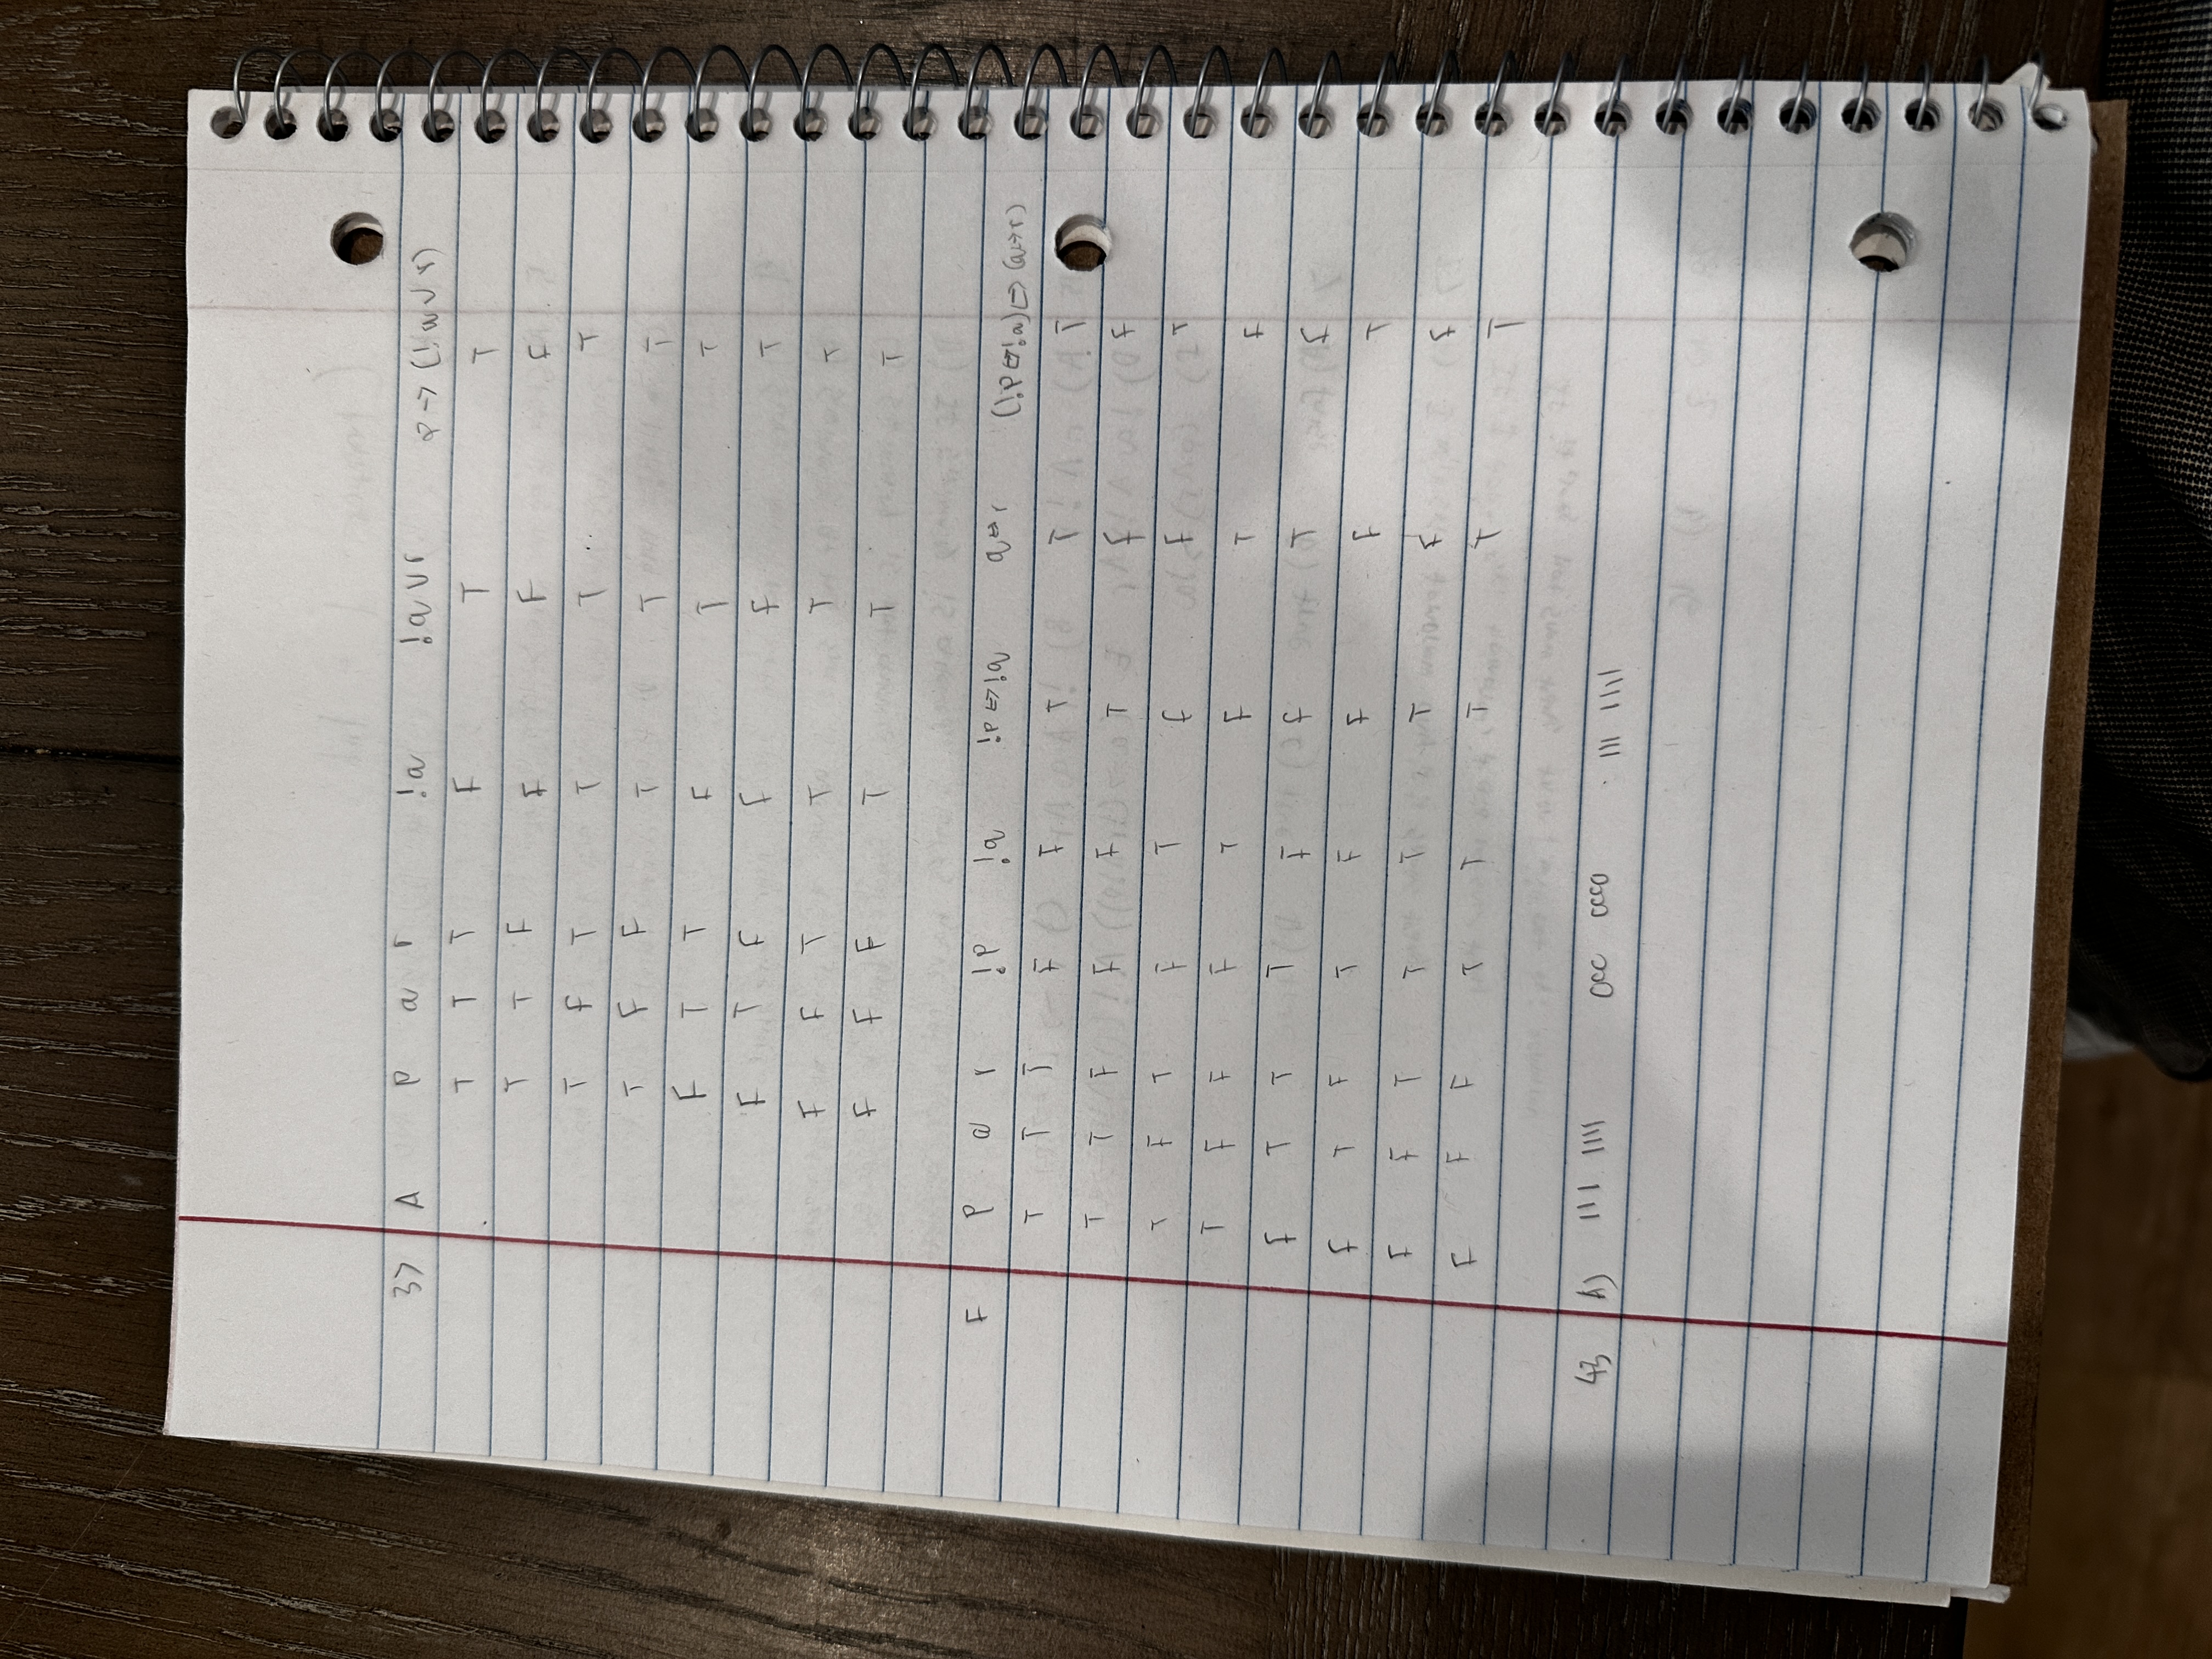 37 A P q r !q !q ∨ r P → (!q ∨ r)
T T T F T T
T T F F F F
T F T T T T
T F F T T T
F T T F T T
F T F F F T
F F T T T T
F F F T T T
F P q r !P !q !P ⇔ !q q ↔ r (!P ↔ !q) ↔ (q ↔ r)
T T T F F T T T
T T F F F T F F
T F T F T F F T
T F F F T F T F
F T T T F F T F
F T F T F F F T
F F T T T T F F
F F F T T T T T
43 A) 111 1111 000 0000 111 1111